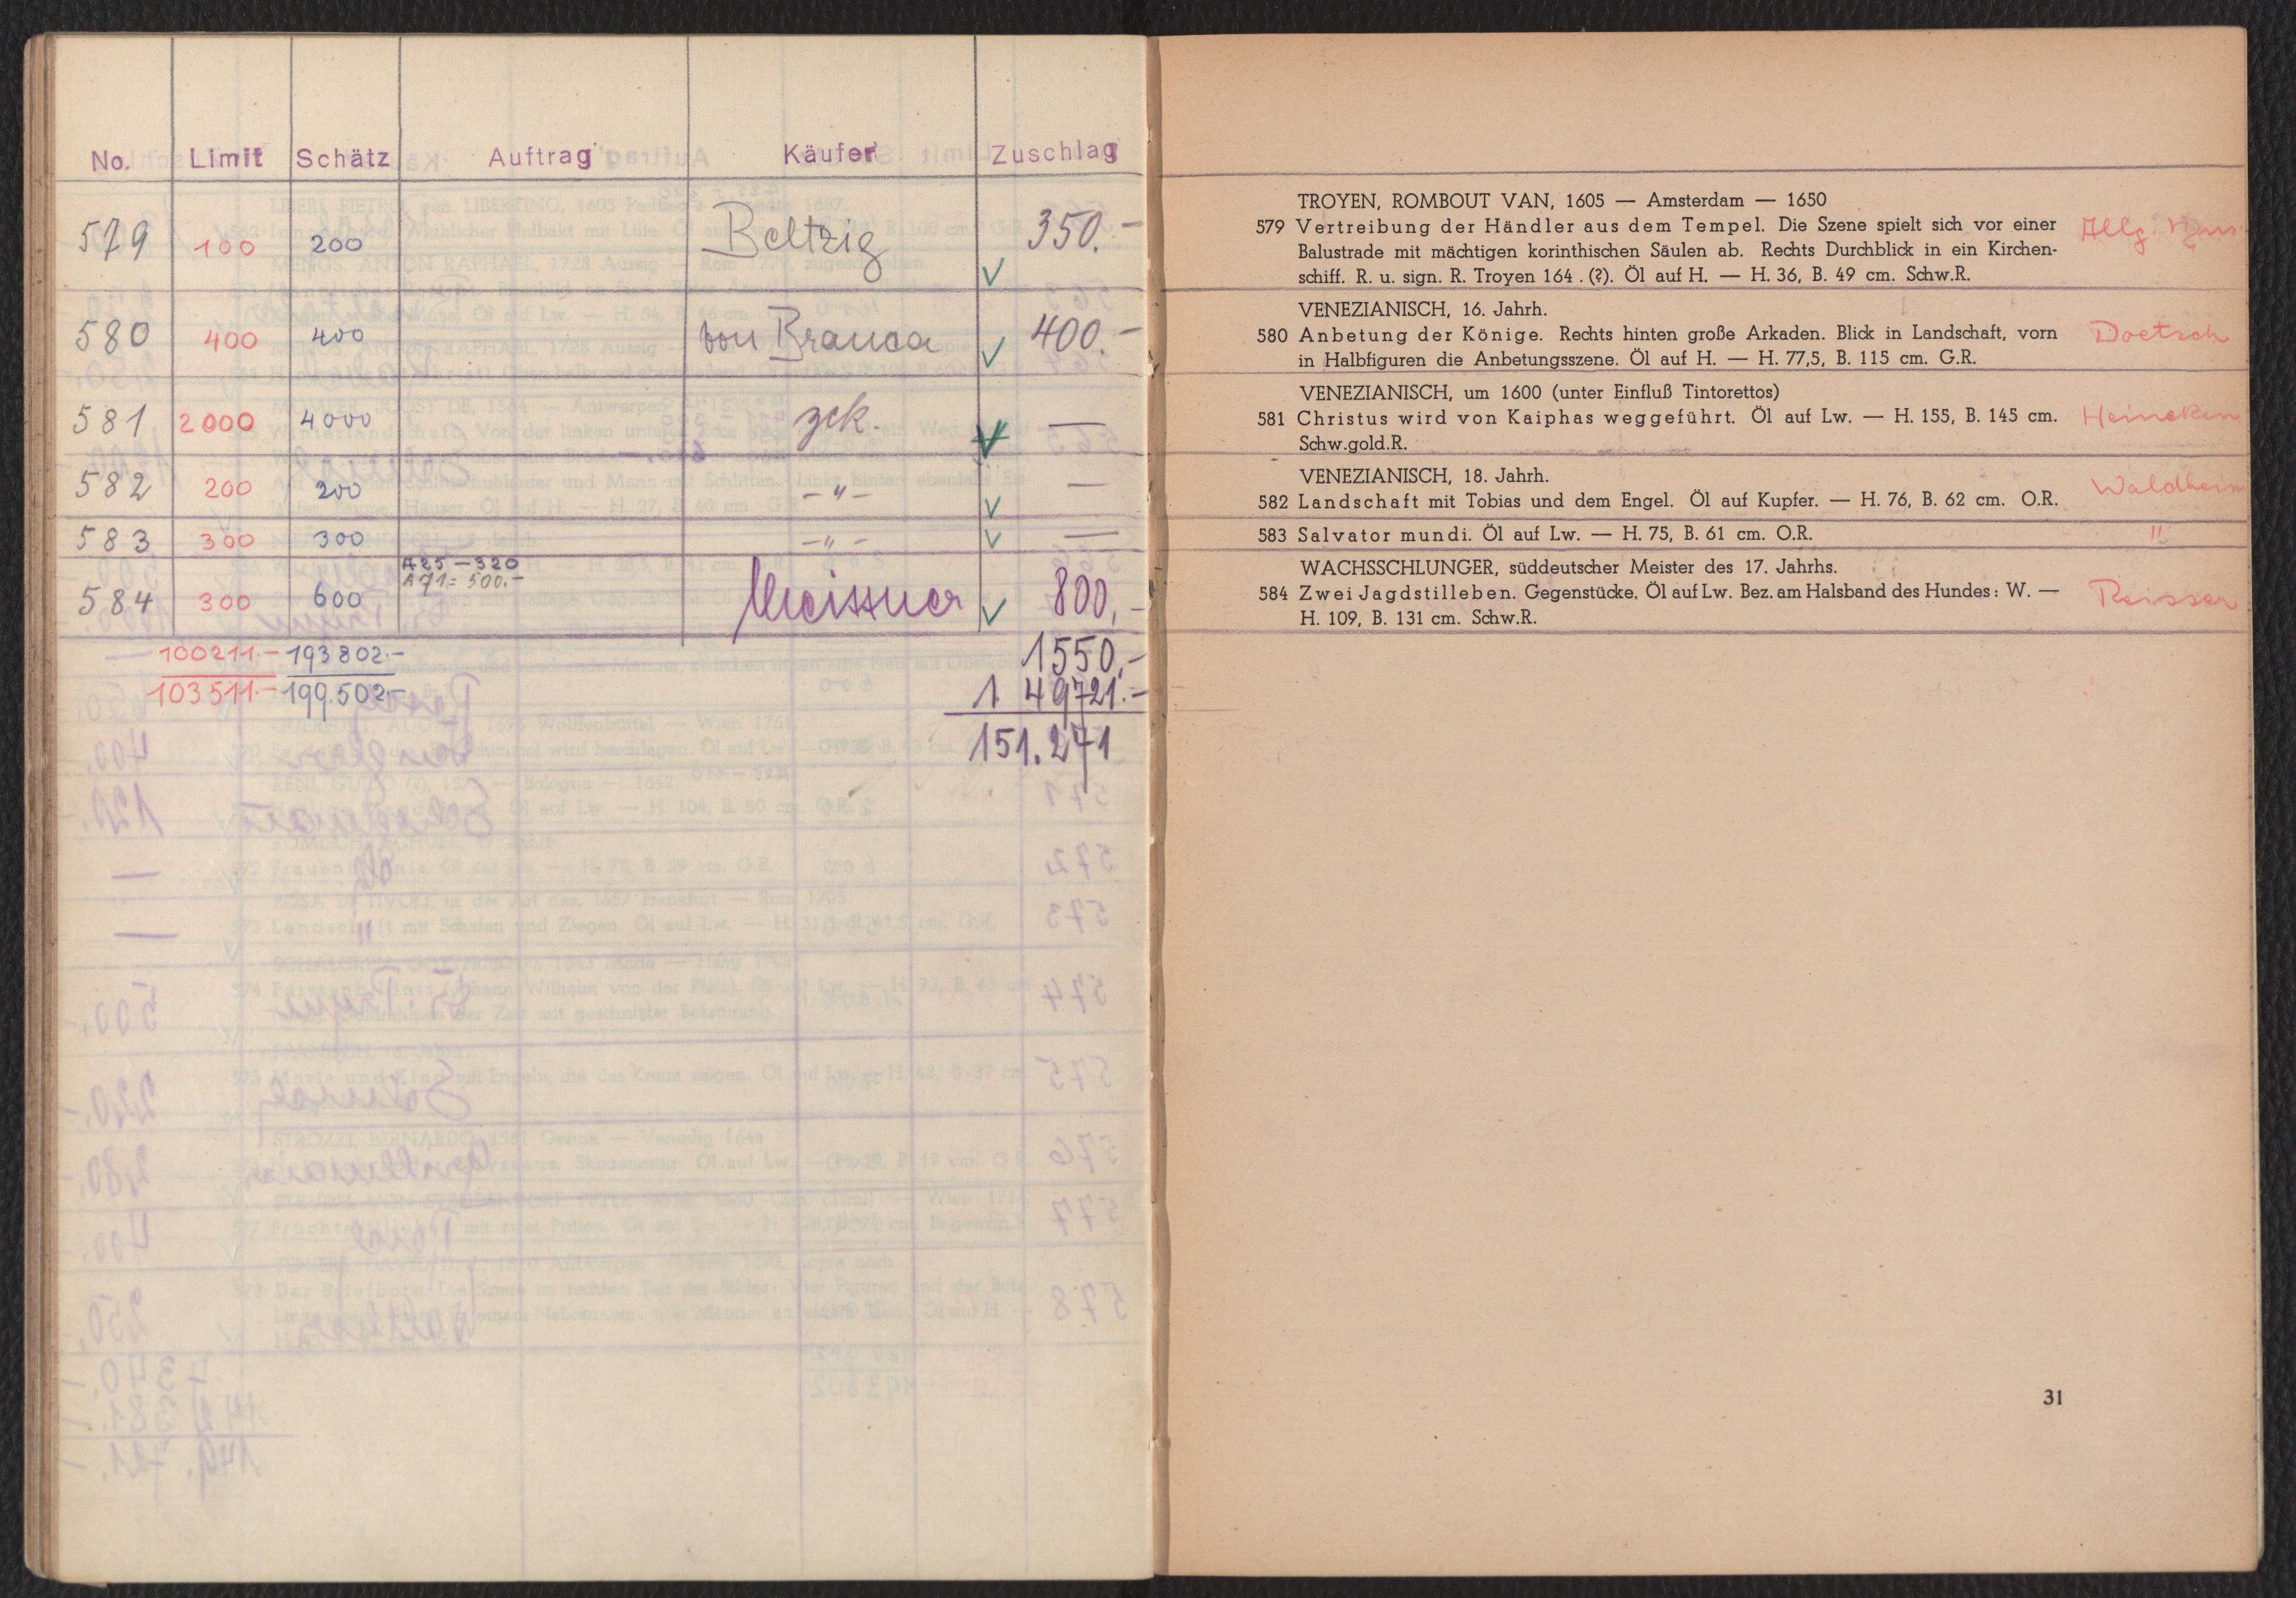 No. Limit Schätz Auftrag Käufer Zuschlag
579 100 200 Beltzig 350.-
580 400 400 von Branca 400.-
581 2000 4000 zck. —
582 200 200 -"- —
583 300 300 -"- —
A25 – 320
A71 = 500.-
584 300 600 Meissner 800,-
100211.- 193802.- 1550,-
103511.- 199.502.- 149721.-
151.271
TROYEN, ROMBOUT VAN, 1605 — Amsterdam — 1650
579 Vertreibung der Händler aus dem Tempel. Die Szene spielt sich vor einer
Balustrade mit mächtigen korinthischen Säulen ab. Rechts Durchblick in ein Kirchen-
schiff. R. u. sign. R. Troyen 164 . (?). Öl auf H. — H. 36, B. 49 cm. Schw.R.
VENEZIANISCH, 16. Jahrh.
580 Anbetung der Könige. Rechts hinten große Arkaden. Blick in Landschaft, vorn Doetsch
in Halbfiguren die Anbetungsszene. Öl auf H. — H. 77,5, B. 115 cm. G.R.
VENEZIANISCH, um 1600 (unter Einfluß Tintorettos)
581 Christus wird von Kaiphas weggeführt. Öl auf Lw. — H. 155, B. 145 cm. Heineken
Schw.gold.R.
VENEZIANISCH, 18. Jahrh. Waldheim
582 Landschaft mit Tobias und dem Engel. Öl auf Kupfer. — H. 76, B. 62 cm. O.R.
583 Salvator mundi. Öl auf Lw. — H. 75, B. 61 cm. O.R. "
WACHSSCHLUNGER, süddeutscher Meister des 17. Jahrhs.
584 Zwei Jagdstilleben. Gegenstücke. Öl auf Lw. Bez. am Halsband des Hundes: W. — Reisser
H. 109, B. 131 cm. Schw.R.
31